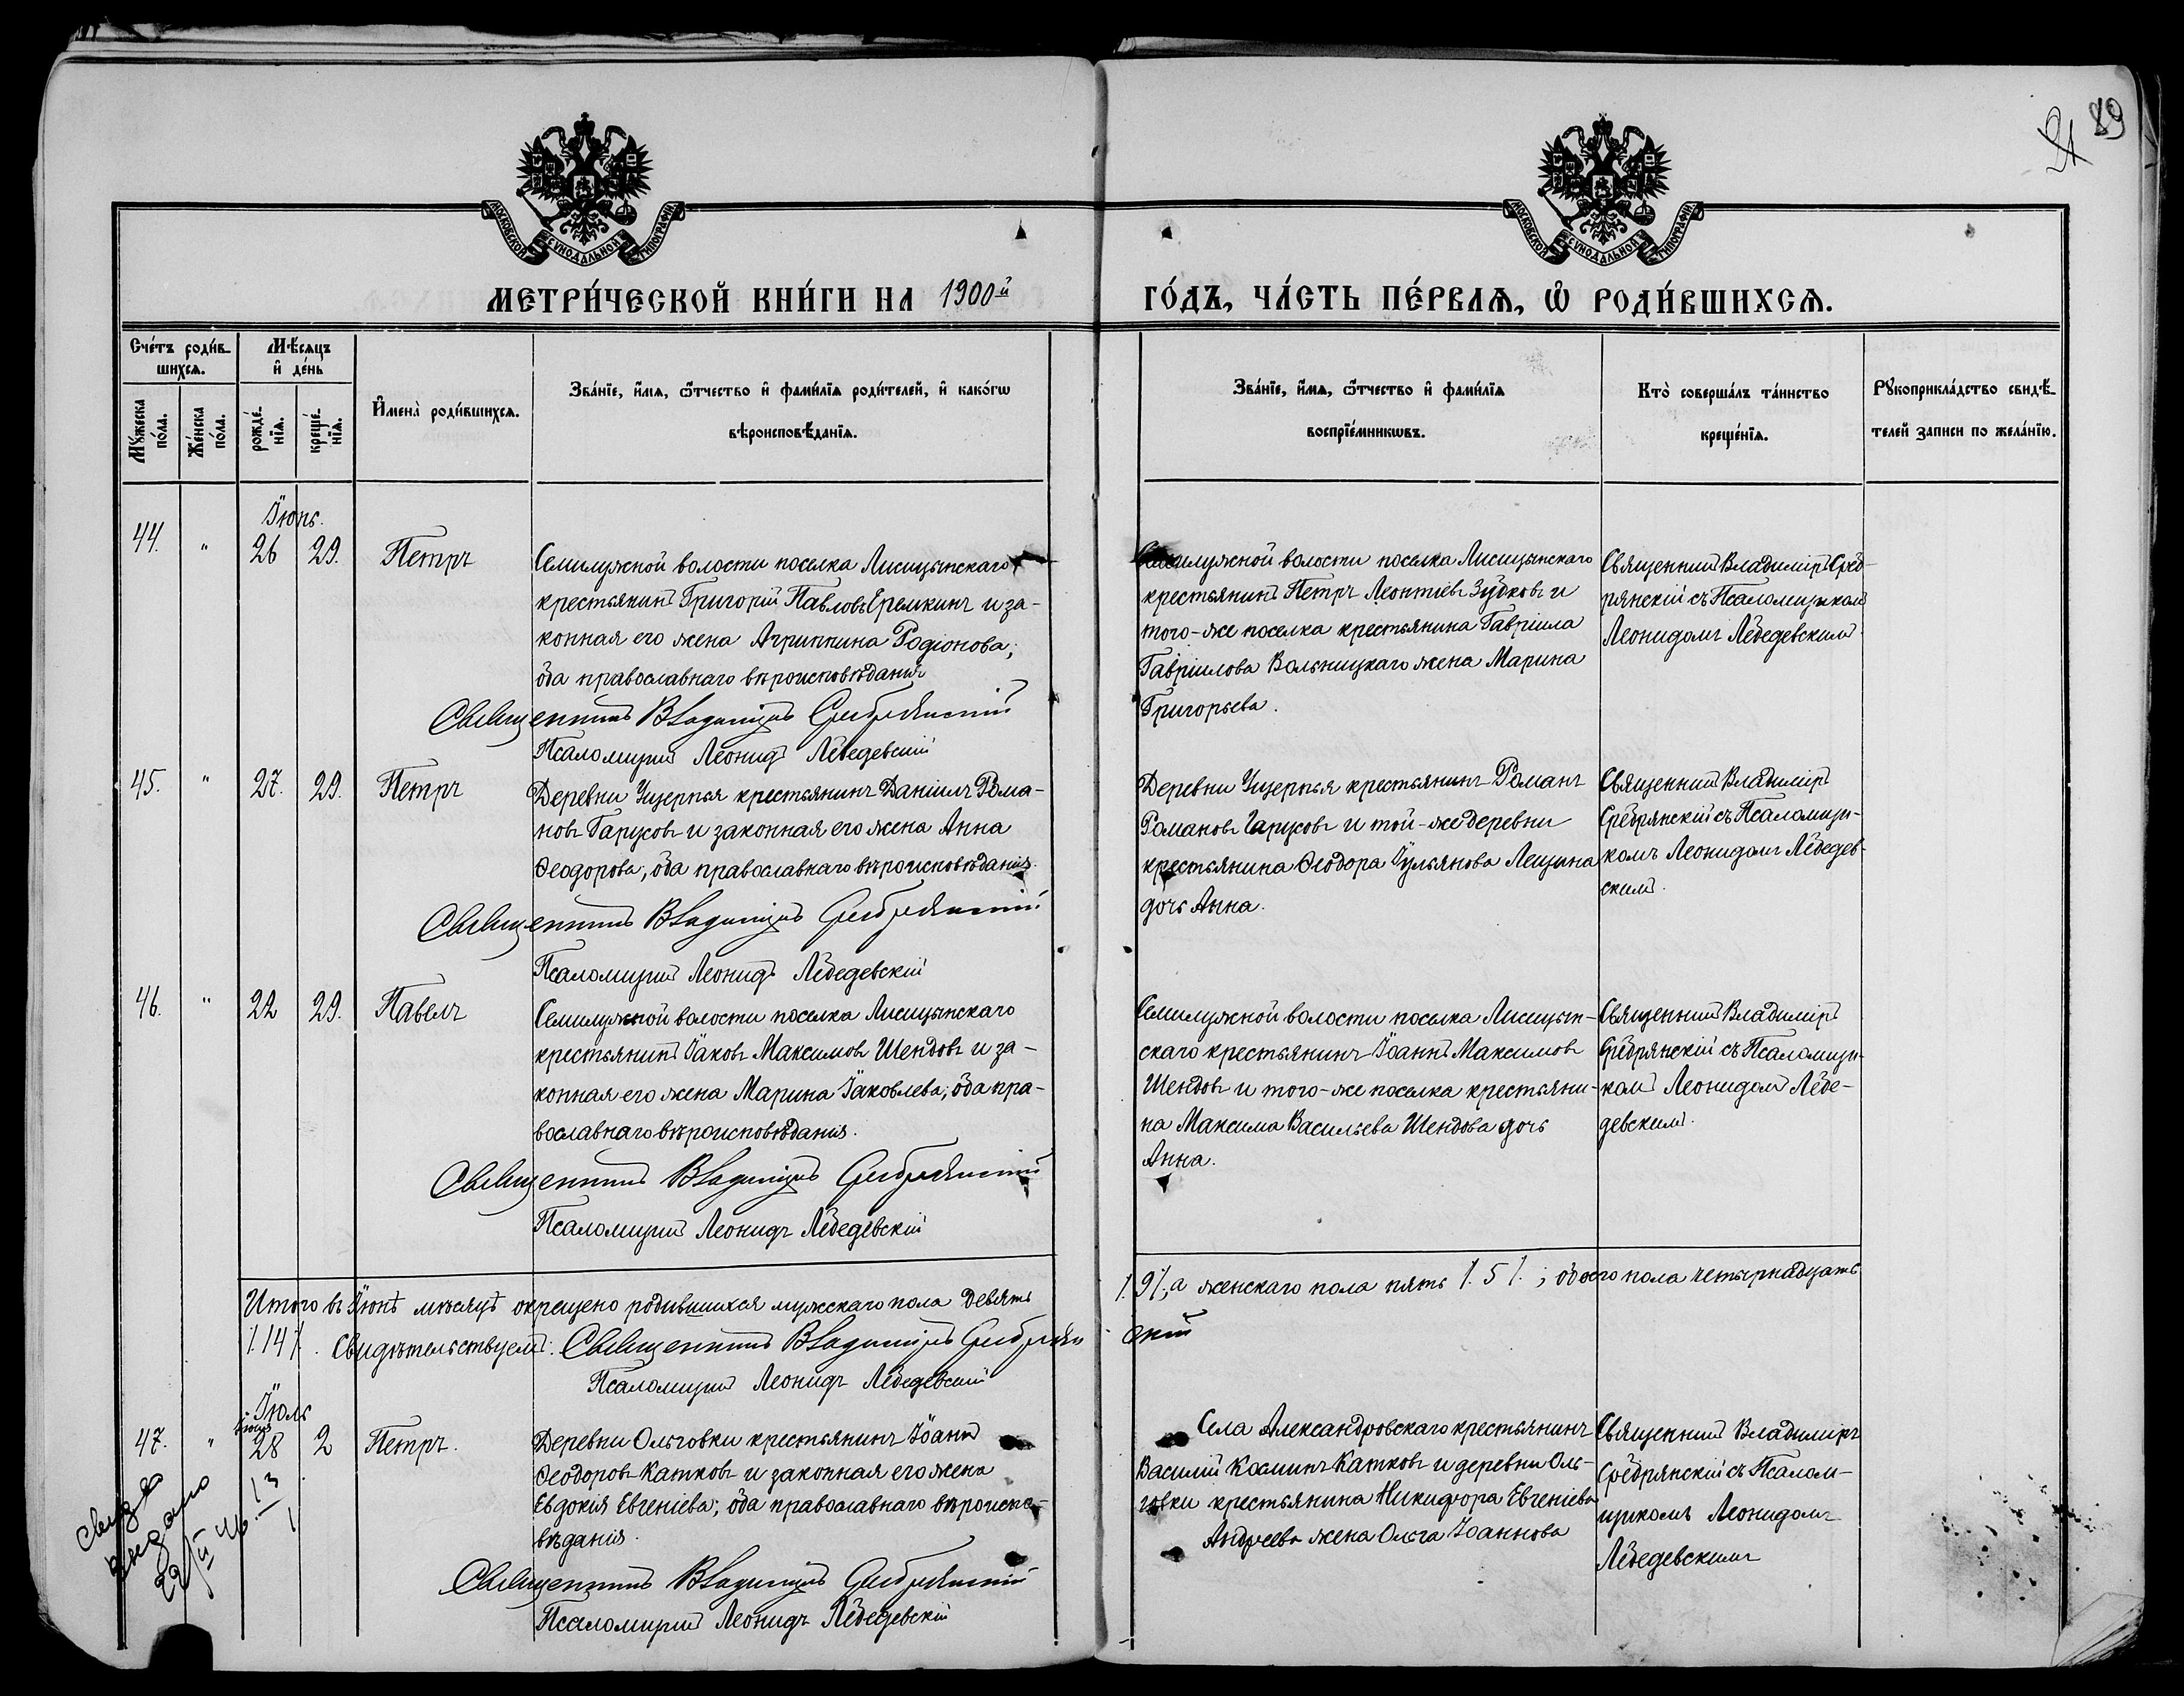 89
МОСКОВСКОЙ СѴНОДАЛЬНОЙ ТИПОГРАФІИ
МОСКОВСКОЙ СѴНОДАЛЬНОЙ ТИПОГРАФІИ
МЕТРИ́ЧЕСКОЙ КНИ́ГИ НА 1900й ГО́ДЪ, ЧА́СТЬ ПЕ́РВАѦ, Ѡ РОДИ́ВШИХСѦ.
Сче́тъ роди́в-
шихсѧ.
Мѣ́сѧцъ
и҆ де́нь
Мꙋ́жеска
по́ла.
Же́нска
по́ла.
рожде́-
нїѧ.
креще́-
нїѧ.
И҆мена̀ роди́вшихсѧ.
Зва́нїе, и҆́мѧ, ѻ҆́тчество и҆ фами́лїѧ роди́телей, и҆ како́гѡ
вѣроисповѣ́данїѧ.
Зва́нїе, и҆́мѧ, ѻ҆́тчество и҆ фами́лїѧ
воспрїе́мникѡвъ.
Кто̀ соверша́лъ та́инство
креще́нїѧ.
Рꙋкоприкла́дство свидѣ́-
телей записи по жела́нїю.
Іюнь.
44. " 26 29. Петръ
Семилужной волости поселка Лисицынскаго
крестьянинъ Григорій Павловъ Еремкинъ и за-
конная его жена Агриппина Родіонова;
оба православнаго вѣроисповѣданія
Священникъ Владиміръ Сребрянскій
Псаломщикъ Леонидъ Лебедевскій
Семилужной волости поселка Лисицынскаго
крестьянинъ Петръ Леонтіевъ Зубковъ и
того-же поселка крестьянина Гавріила
Гавріилова Вольницкаго жена Марина
Григорьева.
Священникъ Владиміръ Среб-
рянскій съ Псаломщикомъ
Леонидомъ Лебедевскимъ
45. " 27. 29. Петръ
Деревни Ущерпья крестьянинъ Даніилъ Рома-
новъ Гарусовъ и законная его жена Анна
Ѳеодорова, оба православнаго вѣроисповѣданія.
Священникъ Владиміръ Сребрянскій
Псаломщикъ Леонидъ Лебедевскій
Деревни Ущерпья крестьянинъ Романъ
Романовъ Гарусовъ и той-же деревни
крестьянина Ѳеодора Іульянова Лещина
дочь Анна.
Священникъ Владиміръ
Сребрянскій съ Псаломщи-
комъ Леонидомъ Лебедев-
скимъ.
46. " 22 29. Павелъ
Семилужной волости поселка Лисицынскаго
крестьянинъ Іаковъ Максимовъ Шендовъ и за-
конная его жена Марина Іаковлева; оба пра-
вославнаго вѣроисповѣданія.
Священникъ Владиміръ Сребрянскій
Псаломщикъ Леонидъ Лебедевскій
Семилужной волости поселка Лисицын-
скаго крестьянинъ Іоаннъ Максимовъ
Шендовъ и того-же поселка крестьяни-
на Максима Васильева Шендова дочь
Анна.
Священникъ Владиміръ
Сребрянскій съ Псаломщи-
комъ Леонидомъ Лебе-
девскимъ.
Итого въ Іюнѣ мѣсяцѣ окрещено родившихся мужскаго пола девять /. 9 /., а женскаго пола пять /. 5 /. ; обоего пола четырнадцать
/. 14 /. Свидѣтельствуемъ: Священникъ Владиміръ Сребрянскій
Псаломщикъ Леонидъ Лебедевскій
Іюль
Іюня
47. " 28 2 Петръ.
Деревни Ольговки крестьянинъ Іоаннъ
Ѳеодоровъ Катковъ и законная его жена
Евдокія Евгеніева; оба православнаго вѣроиспо-
вѣданія.
Священникъ Владиміръ Сребрянскій
Псаломщикъ Леонидъ Лебедевскій
Села Александровскаго крестьянинъ
Василій Косминъ Катковъ и деревни Оль-
говки крестьянина Никифора Евгеніева
Андреева жена Ольга Іоаннова
Священникъ Владиміръ
Сребрянскій съ Псалом-
щикомъ Леонидомъ
Лебедевскимъ
выдано
22/II 46.
13